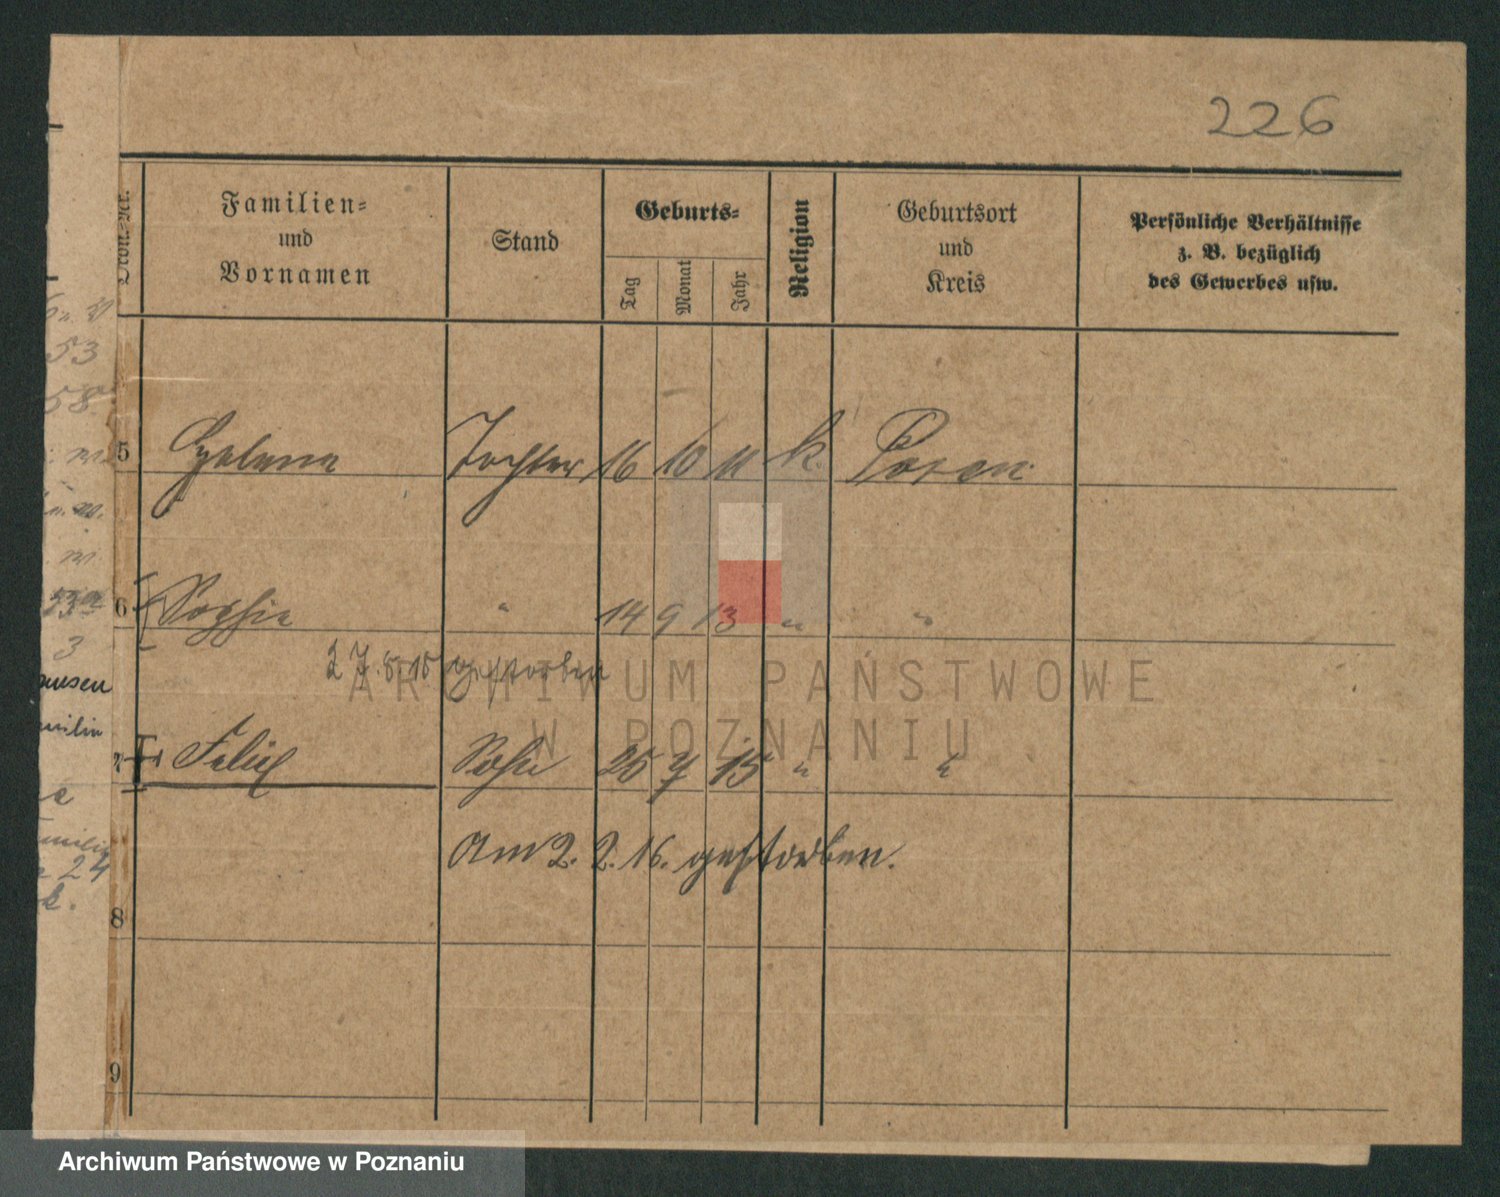 226
Familien=
und
Vornamen
Stand
Geburts=
Tag
Monat
Jahr
Religion
Geburtsort
und
Kreis
Persönliche Verhältnisse
z. B. bezüglich
des Gewerbes usw.
53
58
5 Helena Tochter 16 10 11 k. Posen
6 Sophie " 14 9 13 " "
3
27.5.15 gestorben
ARCHIWUM PAŃSTWOWE
W POZNANIU
7 Felix Sohn 25 7 15 " "
Am 2. 2. 16. gestorben.
24
k.
8
9
Archiwum Państwowe w Poznaniu